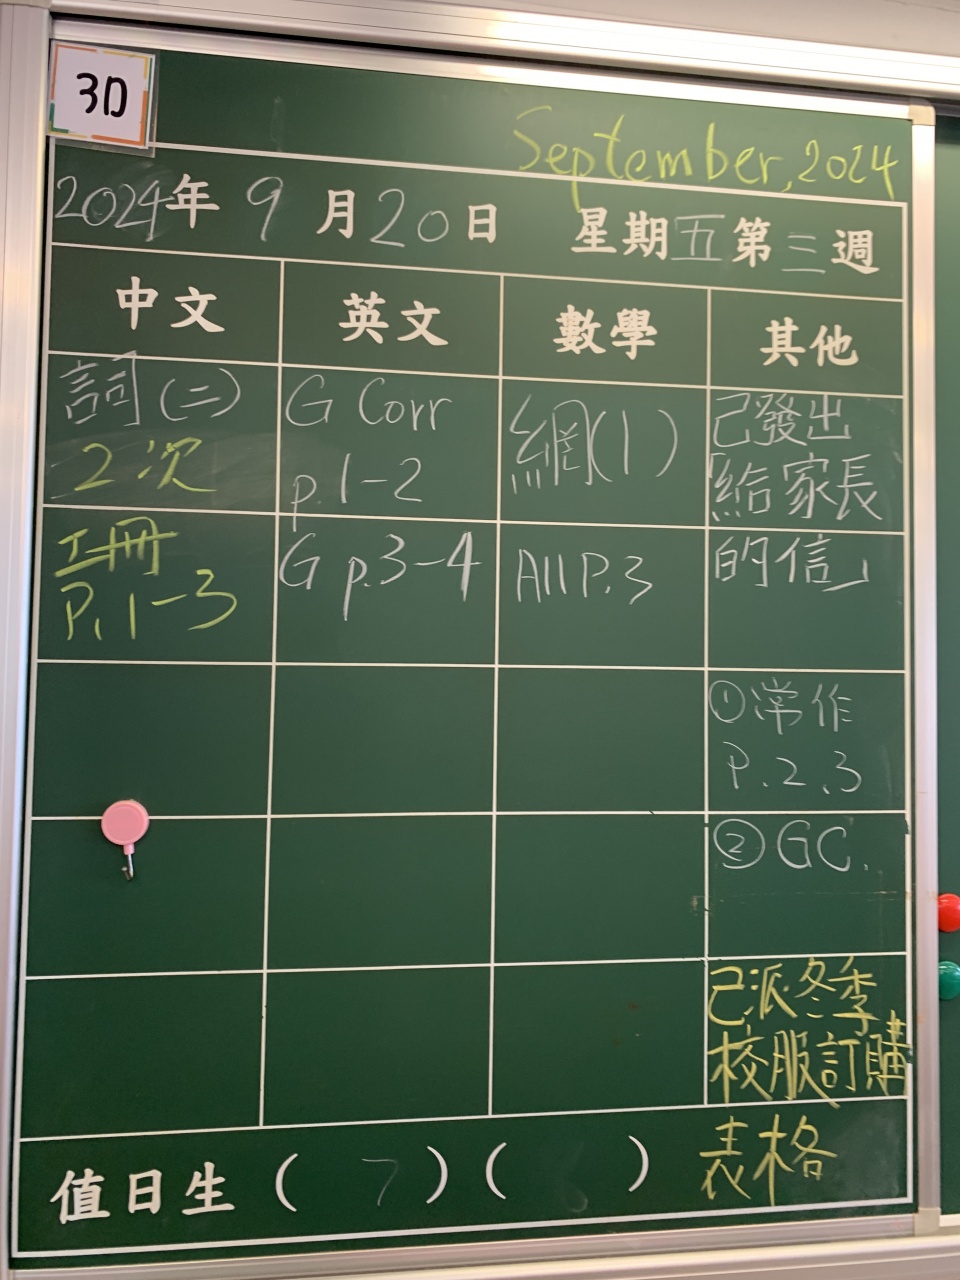 3D
September, 2024
2024年 9 月 20 日 星期 五 第 三 週
中文 英文 數學 其他
詞(二)
2次
G Corr
p.1-2
網(1)
已發出
「給家長
工冊
P.1-3
G p.3-4
All P.3
的信」
①常作
P.2,3
②GC.
已派冬季
校服訂購
表格
值日生 ( 7 ) ( )